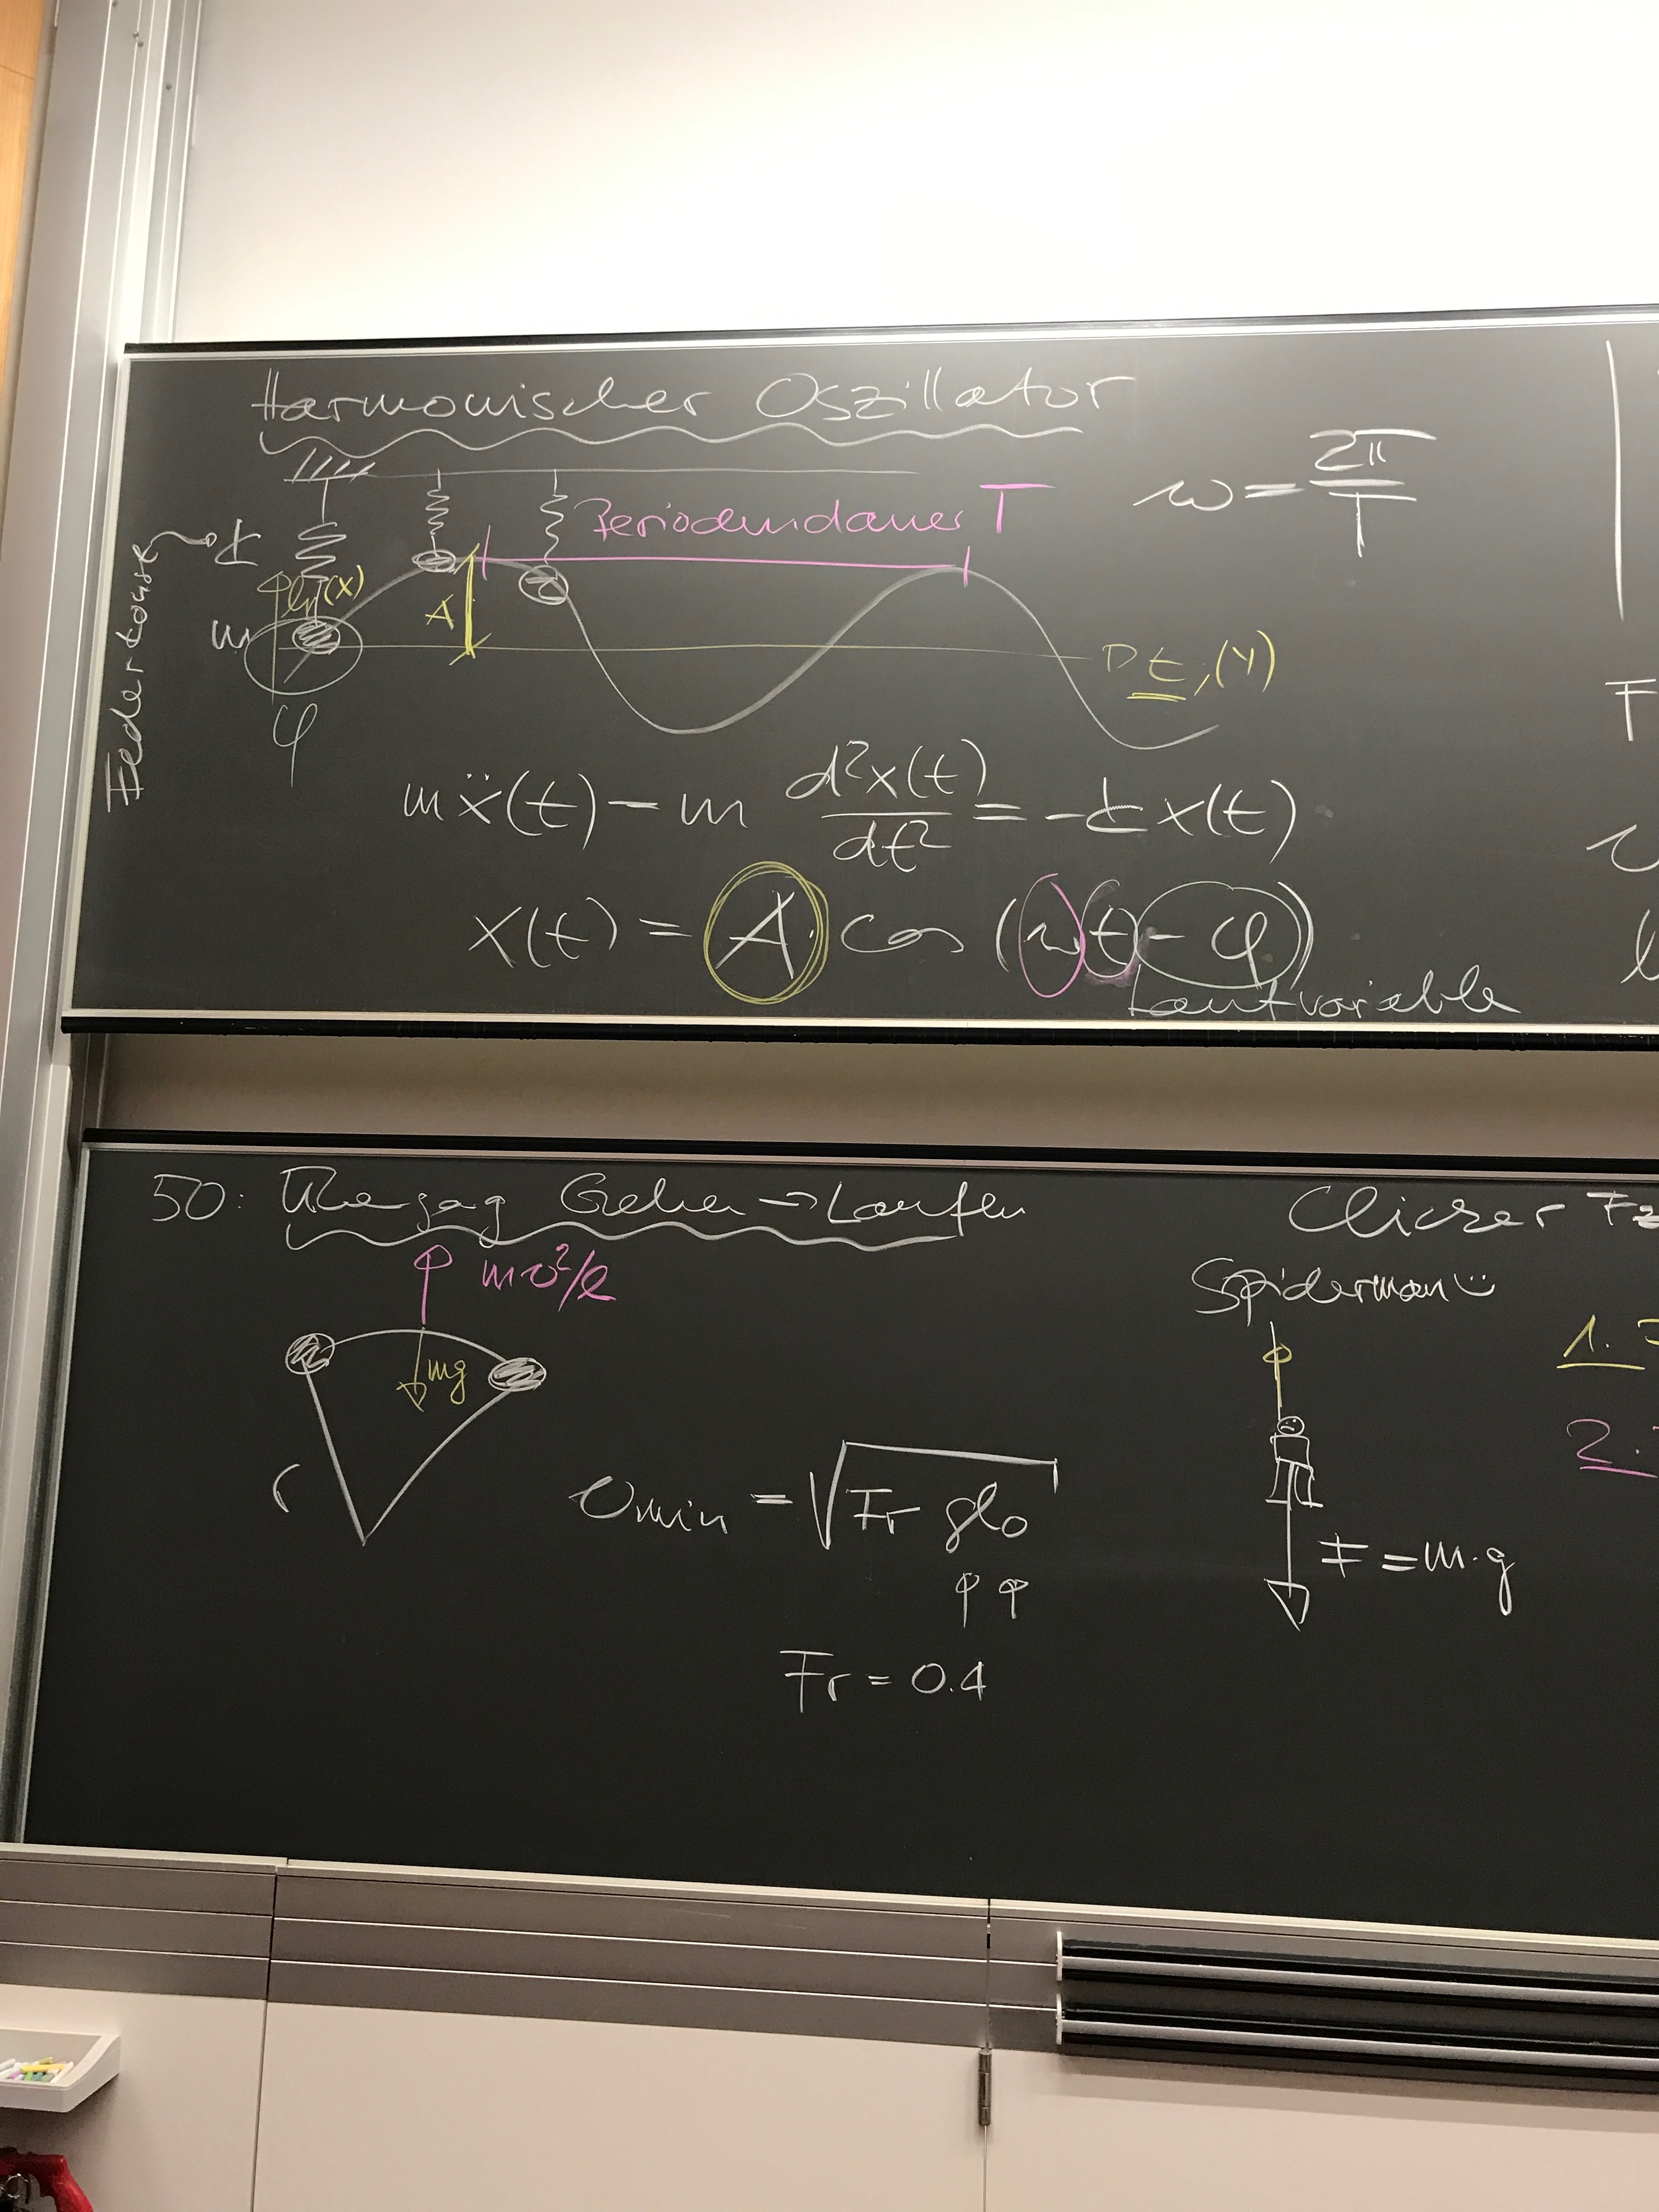 Harmonischer Oszillator
Periodendauer T
ω = 2π/T
Federkonst
k
h, (x)
m
A
t, (y)
φ
mẍ(t) - m d²x(t)/dt² = -k x(t)
x(t) = A · cos (ωt - φ)
Laufvariable
50: Übergag Gehen → Laufen
mv²/l
mg
vmin = √Fr gl₀
Fr = 0.4
Clicker
Spiderman
F = m·g
1.
2.